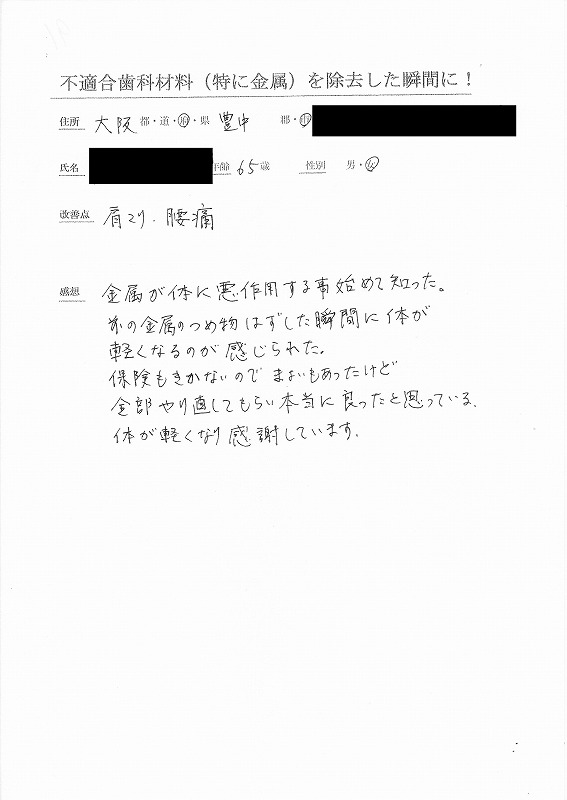 不適合歯科材料（特に金属）を除去した瞬間に！
住所 大阪 都・道・府・県 豊中 郡・市
氏名 年齢 65歳 性別 男・女
改善点 肩こり．腰痛
感想 金属が体に悪作用する事始めて知った。
の金属のつめ物はずした瞬間に体が
軽くなるのが感じられた。
保険もきかないのでまよいもあったけど
全部やり直してもらい本当に良ったと思っている、
体が軽くなり感謝しています．